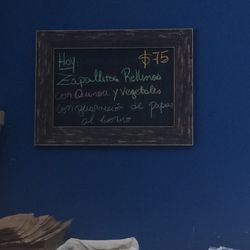 Hoy $75
Zapallitos Rellenos
con Quinoa y vegetales
con guarnición de papas
al horno